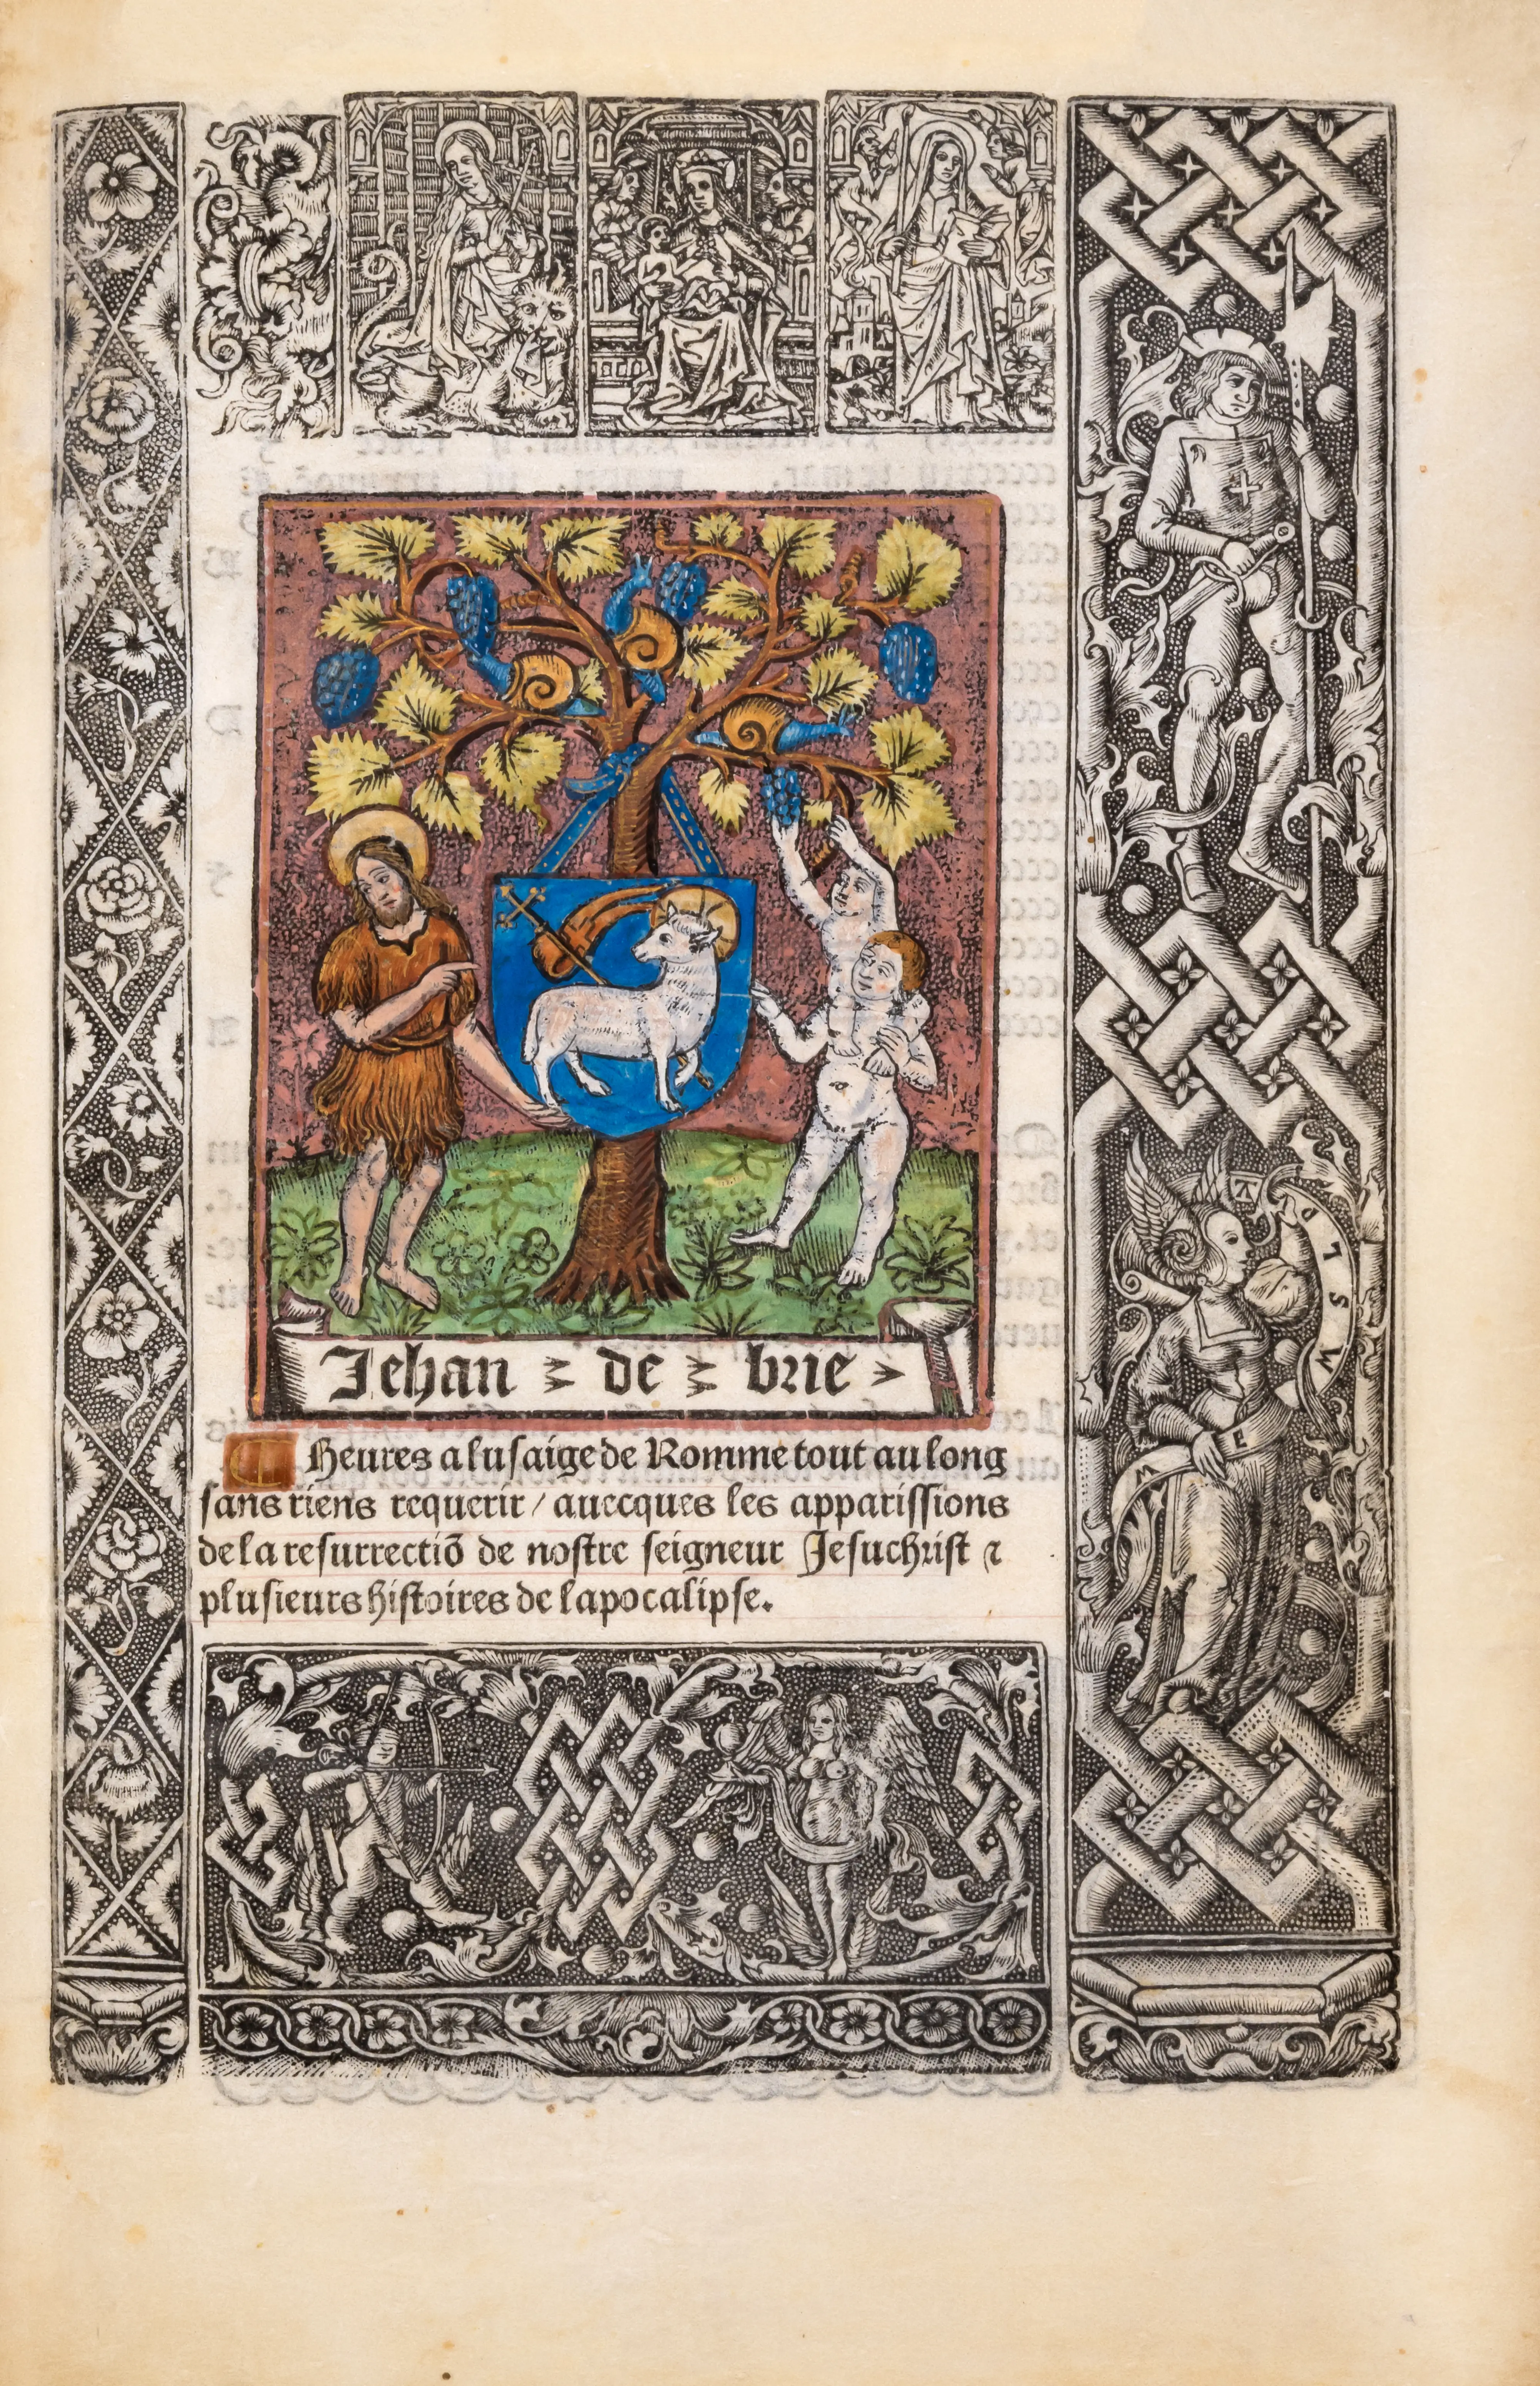 Jehan de brie
Heures a lusaige de Romme tout au long
sans riens requerir / auecques les apparissions
de la resurrectiō de nostre seigneur Jesuchrist ⁊
plusieurs histoires de lapocalipse.